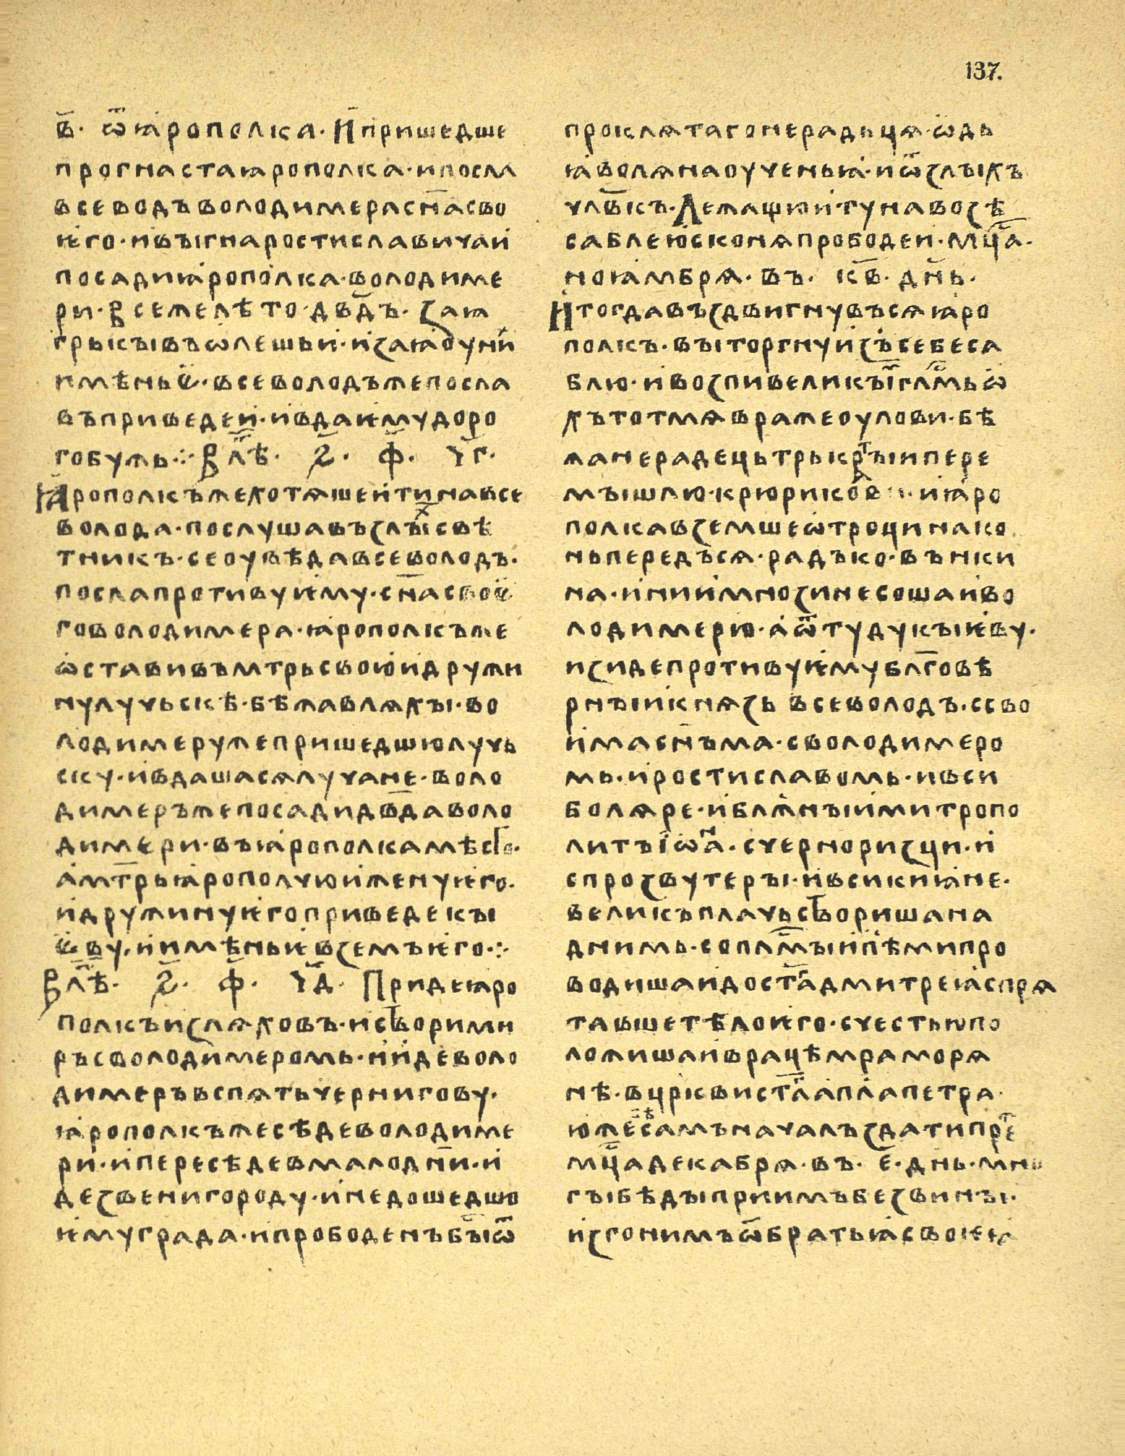 137.
в҃· ѿ ꙗрополка· И пришедше
прогнаста ꙗрополка· и посла
всеводъ володимера сн҃а сво
ѥго· и въıгна ростиславича и
посади ꙗрополка· володиме
ри· В се же лѣто· дв҃дъ· заꙗ
грькъı въ ѡлешьи· и заꙗ оу ни
имѣньє· всеволодъ же посла
въ приведе и· и вда ѥму доро
гобужь ⁘ В лѣ· ҂ꙅ· ф҃· ч҃г·
Ꙗрополкъ же хотѧше ити на все
волода· послушавъ злъı свѣ
тникъ· се оувѣдавъ всеволодъ·
посла противу ѥму· сн҃а своѥ
го володимера· ꙗрополкъ же
ѡставивъ мт҃рь свою и дружи
ну лучьскѣ· бѣжа в лѧхъı· во
лодимеру же пришедшю лучь
ску· и вдашасѧ лучане· воло
димеръ же посади дв҃да воло
димери· въ ꙗрополка мѣсто·
а мт҃рь ꙗрополчю и жену ѥго·
и дружину ѥго приведе къı
єву· и имѣньѥ вземъ ѥго ⁘
В лѣ· ҂ꙅ· ф҃· ч҃д· Приде ꙗро
полкъ из лѧховъ· и створи ми
ръ с володимеромь· и иде воло
димеръ вспѧть чернигову·
ꙗрополкъ же сѣде володиме
ри· и пересѣдев мало дн҃и· и
де звенигороду· и не дошедшю
ѥму града· и прободенъ бъı ѿ
проклѧтаго нерадьцѧ· ѿ дь
ꙗволѧ наоученьꙗ· и ѿ злъıхъ
члвкъ· Лежащю и ту на возѣ
саблею с конѧ прободе и· мц҃а·
ноꙗмбрѧ· въ· к҃в· дн҃ь·
И тогда въздвигнувъсѧ ꙗро
полкъ· въıторгну изъ себе са
блю· и возпи великъıи глм҃ь ѡ
хъ тот мѧ враже оулови· бѣ
жа нерадець трькрѧтъıи пере
мъıшлю· к рюрикови· и ꙗро
полка вземше ѡтроци на ко
нь передъ сѧ· радъко· вънки
на· и инии мнози несоша и во
лодимерю· а ѿтуду къıѥву·
изиде противу ѥму блг҃овѣ
рнъıи кнѧзь всеволодъ· с сво
има сн҃ъма· с володимеро
мь· и ростиславомь· и вси
болѧре· и блж҃нъıи митропо
литъ іѡанъ· с черноризци· и
с прозвутеръı· и вси киꙗне·
великъ плачь створиша на
д нимь· со псалмъı и пѣ҃ми про
водиша и до ст҃а дмитреꙗ спрѧ
тавше тѣло ѥго· с честью по
ложиша и в рацѣ мраморѧ
нѣ· в црк҃ви ст҃ла апл҃а петра·
юже бѣ самъ началъ здати преже
мц҃а декабрѧ· въ· е҃· дн҃ь· мно
гъı бѣдъı приимъ без винъı·
изгонимъ ѿ братьꙗ своѥꙗ